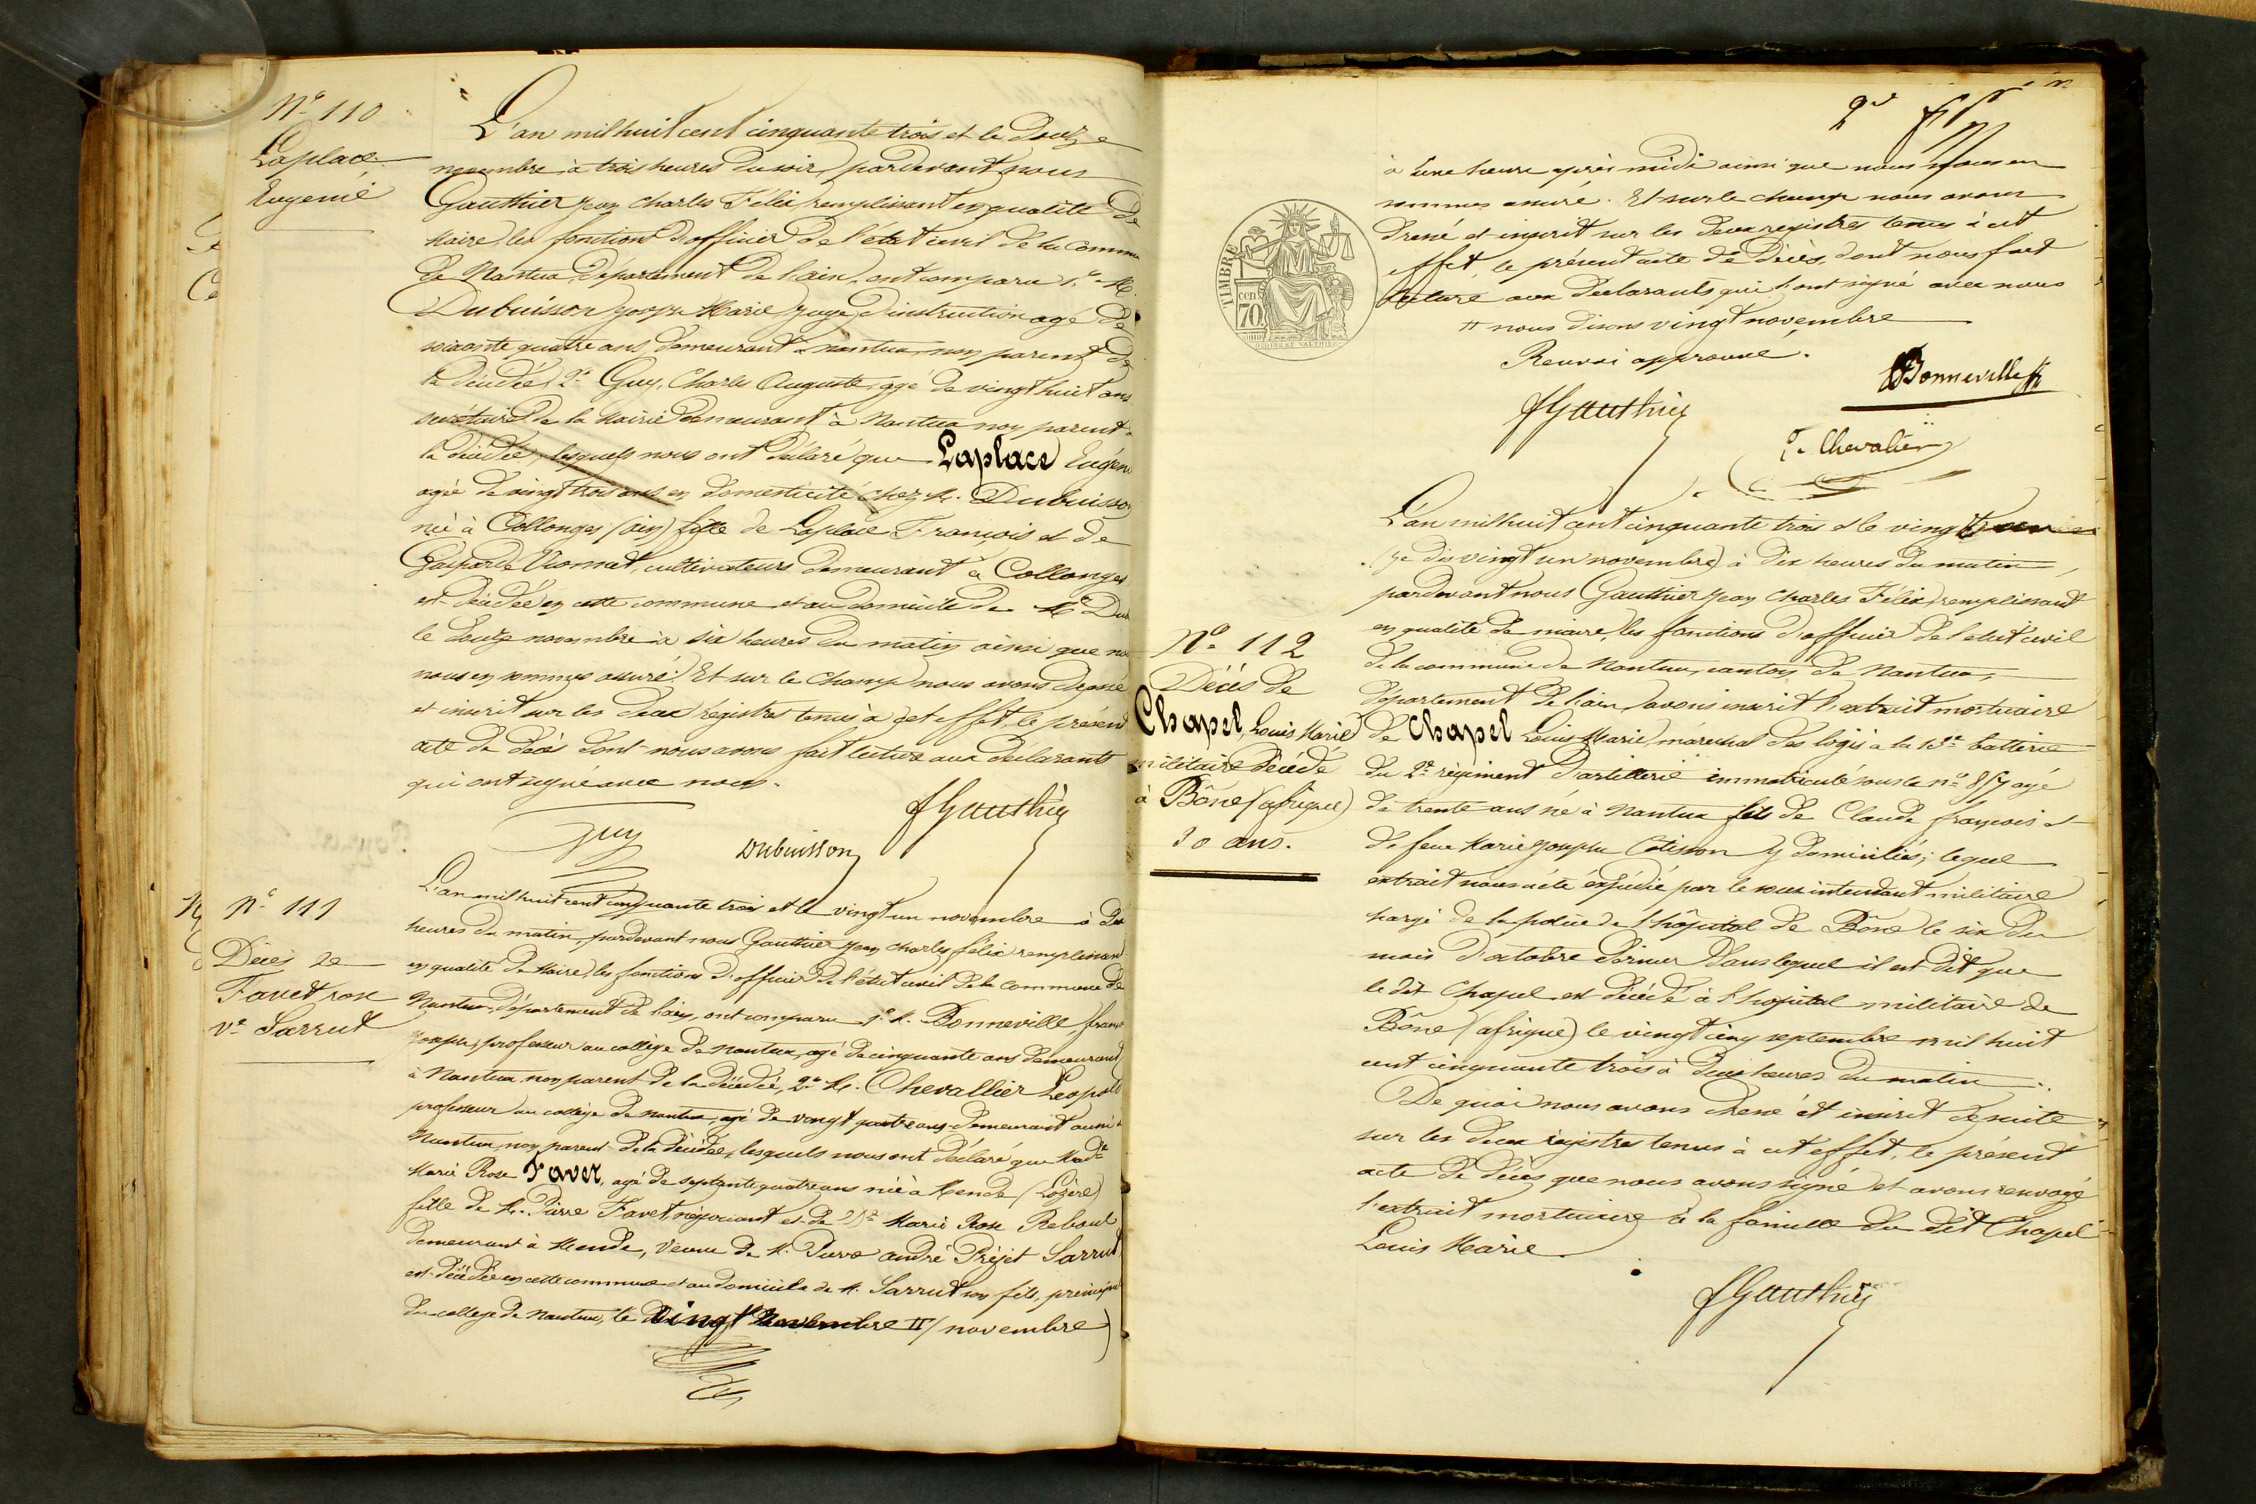 N° 110
Laplace
Eugenie
L'an mil huit cent cinquante trois et le douze
novembre à trois heures du soir, pardevant nous
Gauthier Jean Charles Félix remplissant en qualité de
Maire, les fonctions d'officier de l'état civil de la Commu
de Nantua, département de l'ain, ont comparu 1° M.
Dubuisson Joseph Marie Juge d'instruction agé de
soixante quatre ans, demeurant à nantua, non parent de
la décédée, 2° Guy, Charles Auguste, agé de vingt huit ans
secrétaire de la Mairie demeurant à Nantua non parent
la décédée, lesquels nous ont déclaré que Laplace Eugénie
agée de vingt trois ans en domesticité chez M. Dubuisson
née à Collonges (ain) fille de Laplace François et de
Gasparde cultivateurs demeurant à Collonges
est décédée en cette commune et au domicile de Mr Dub
le douze novembre à six heures du matin ainsi que no
nous en sommes assuré. Et sur le champ nous avons dressé
et inscrit sur les deux régistres tenus à cet effet, le présent
acte de décès dont nous avons fait lecture aux déclarants
qui ont signé avec nous.
Guy
Dubuisson
fGauthier
N° 111
Décès de
Favet rose
Ve Sarrut
L'an mil huit cent cinquante trois et le vingt un novembre à dix
heures du matin, pardevant nous Gauthier Jean Charles félix remplissant
en qualité de Maire, les fonctions d'officier de l'état civil de la commune de
Nantua, département de l'ain, ont comparu 1° M. Bonneville
Joseph, professeur au collège de nantua, agé de cinquante ans demeurant
à Nantua, non parent de la décédée, 2° M. Chevallier Léopold
professeur au collège de nantua, agé de vingt quatre ans demeurant aussi à
Nantua, non parent de la décédée, lesquels nous ont déclaré que Made
Marie Rose Faver, agé de septante quatre ans née à Mende (Lozère)
fille de M. Pierre Favet négociant et de De Marie Rose Reboul
demeurant à Mende, veuve de M. Pierre andré Préjet Sarrut,
est décédée en cette commune et au domicile de M. Sarrut son fils, principal
du collège de Nantua, le vingt novembre II / novembre)
2e
à une heure après midi ainsi que nous nous en
sommes assuré. Et sur le champ nous avons
dressé et inscrit sur les deux registres tenus à cet
effet, le présent acte de décès, dont nous fait
lecture aux déclarants qui l'ont signé avec nous
II nous disons vingt novembre
Renvoi approuvé.
TIMBRE
cen
70
Bonneville
fGauthier
L. Chevalier
N° 112
Décès de
Chapel, Louis Marie
militaire décédé
à Bône (afrique)
30 ans.
L'an mil huit cent cinquante trois et le vingt
(je dis vingt un novembre) à dix heures du matin,
pardevant nous Gauthier Jean Charles Félix, remplissant
en qualité de maire, les fonctions d'officier de l'état civil
de la commune de Nantua, canton de Nantua,
département de l'ain, avons inscrit l'extrait mortuaire
de Chapel Louis Marie, maréchal des logis à la 13e batterie
du 2e régiment d'artillerie immatriculé sous le n° 857 agé
de trente ans né à Nantua fils de Claude françois et
de feue Marie Josephe Cotisson y domiciliés; lequel
extrait nous a été expédié par le sous intendant militaire
chargé de la police de l'hôpital de Bône le six du
mois d'octobre dernier dans lequel il est dit que
le dit Chapel est décédé à l'hopital militaire de
Bône (afrique) le vingt cinq septembre mil huit
cent cinquante trois à deux heures du matin.
De quoi nous avons dressé et inscrit de suite
sur les deux régistres tenus à cet effet, le présent
acte de décès que nous avons signé et avons renvoyé
l'extrait mortuaire à la famille du dit Chapel
Louis Marie.
fGauthier